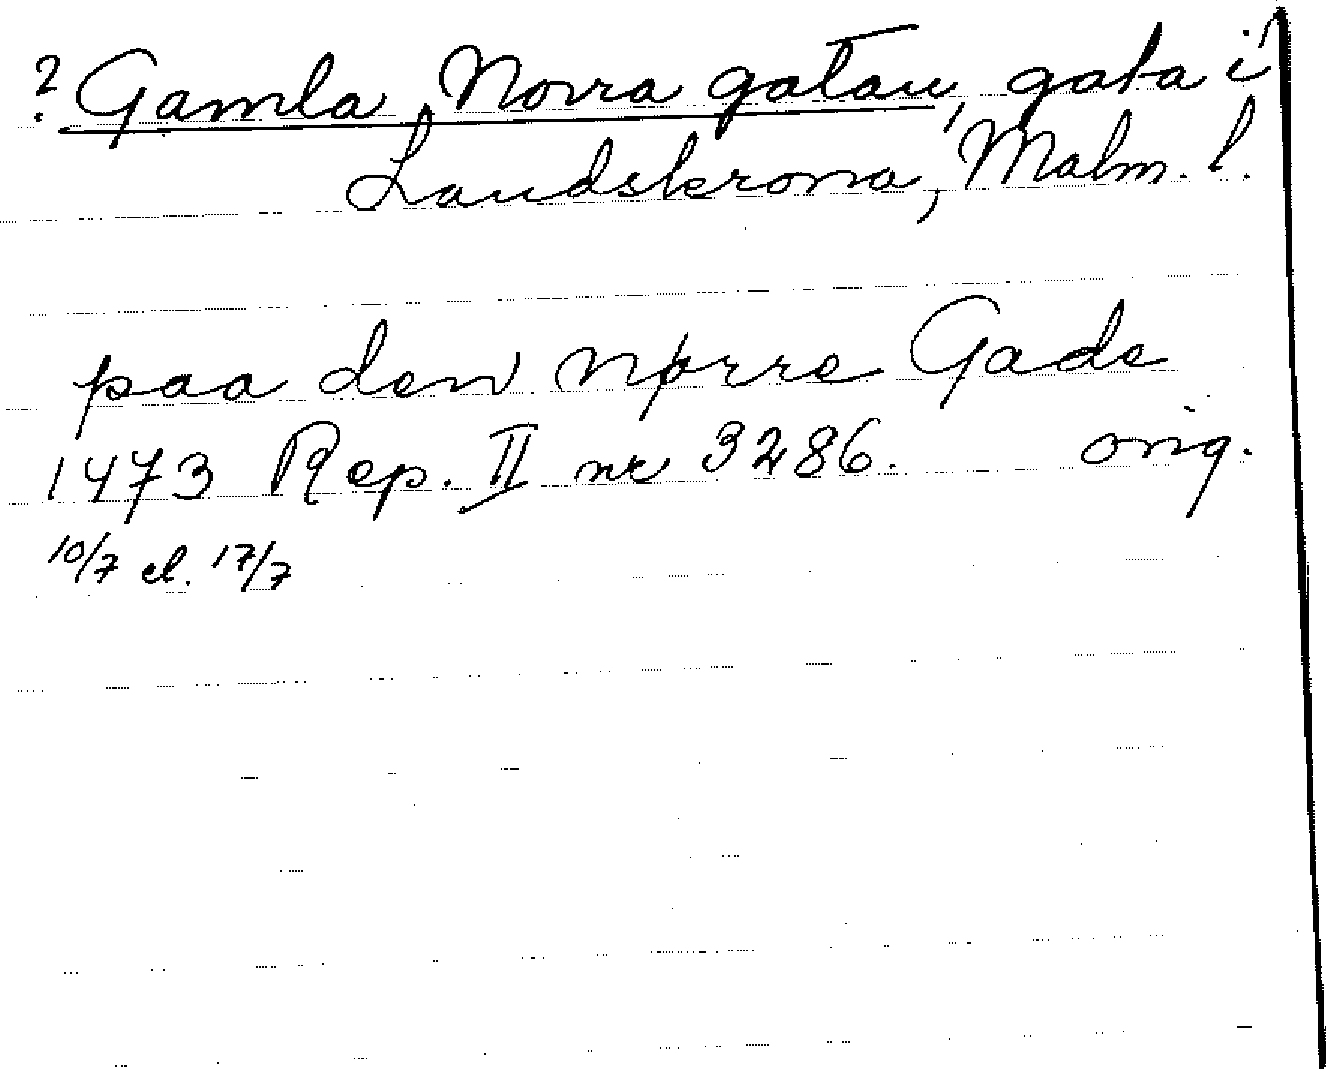 ? Gamla Norra gatan, gata i
Landskrona, Malm. l.
paa den nørre Gade
1473 Rep. II nr 3286. orig.
10/7 el. 17/7